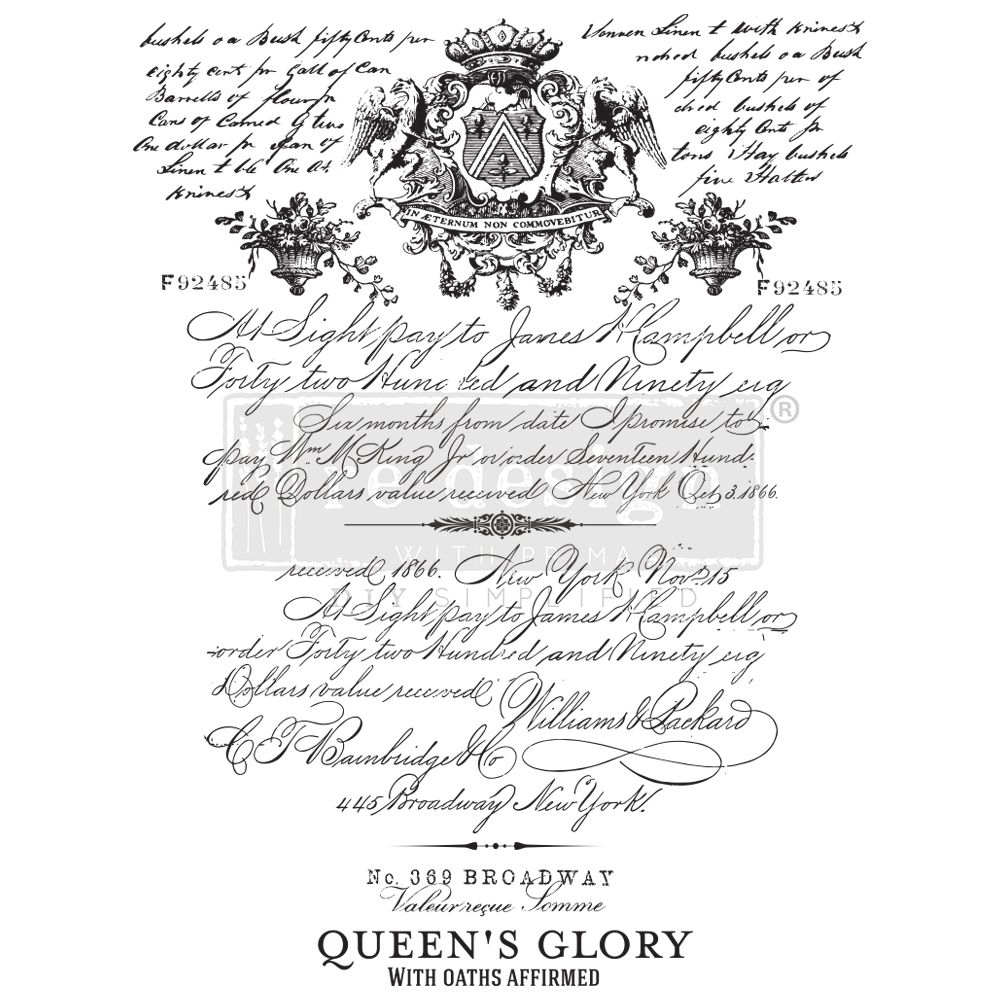 bushels oa Bush fifty Cents per
eighty cent pr Gall of Can
Barrells of flour
Cans of Camed
One dollar pr
Linen t ble One
knives
Linen t with knives
bushels oa Bush
fifty Cents per of
dred bushels of
eighty Cents pr
tons Hay bushels
five Halters
IN ÆTERNUM NON COMMOVEBITUR
F92485
F92485
At Sight pay to James H Campbell or
Forty two Hundred and Ninety eig
Six months from date I promise to
pay Wm. M King Jr or order Seventeen Hund-
red Dollars value received New York Oct 3. 1866.
re·design
®
WITH PRIMA
received 1866. New York Nov. 15
DIY SIMPLIFIED
At Sight pay to James H Campbell or
order Forty two Hundred and Ninety eig
Dollars value received
Williams & Packard
C T Bainbridge & Co
445 Broadway New York.
No. 369 BROADWAY
Valeur reçue Somme
QUEEN'S GLORY
WITH OATHS AFFIRMED